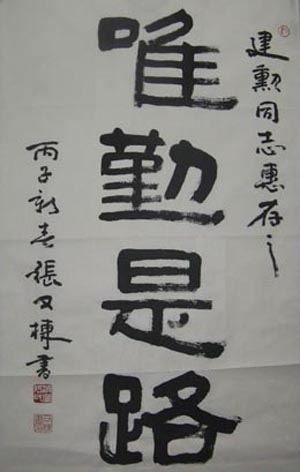 建勲同志惠存之
唯勤是路
丙子新春張又棟書